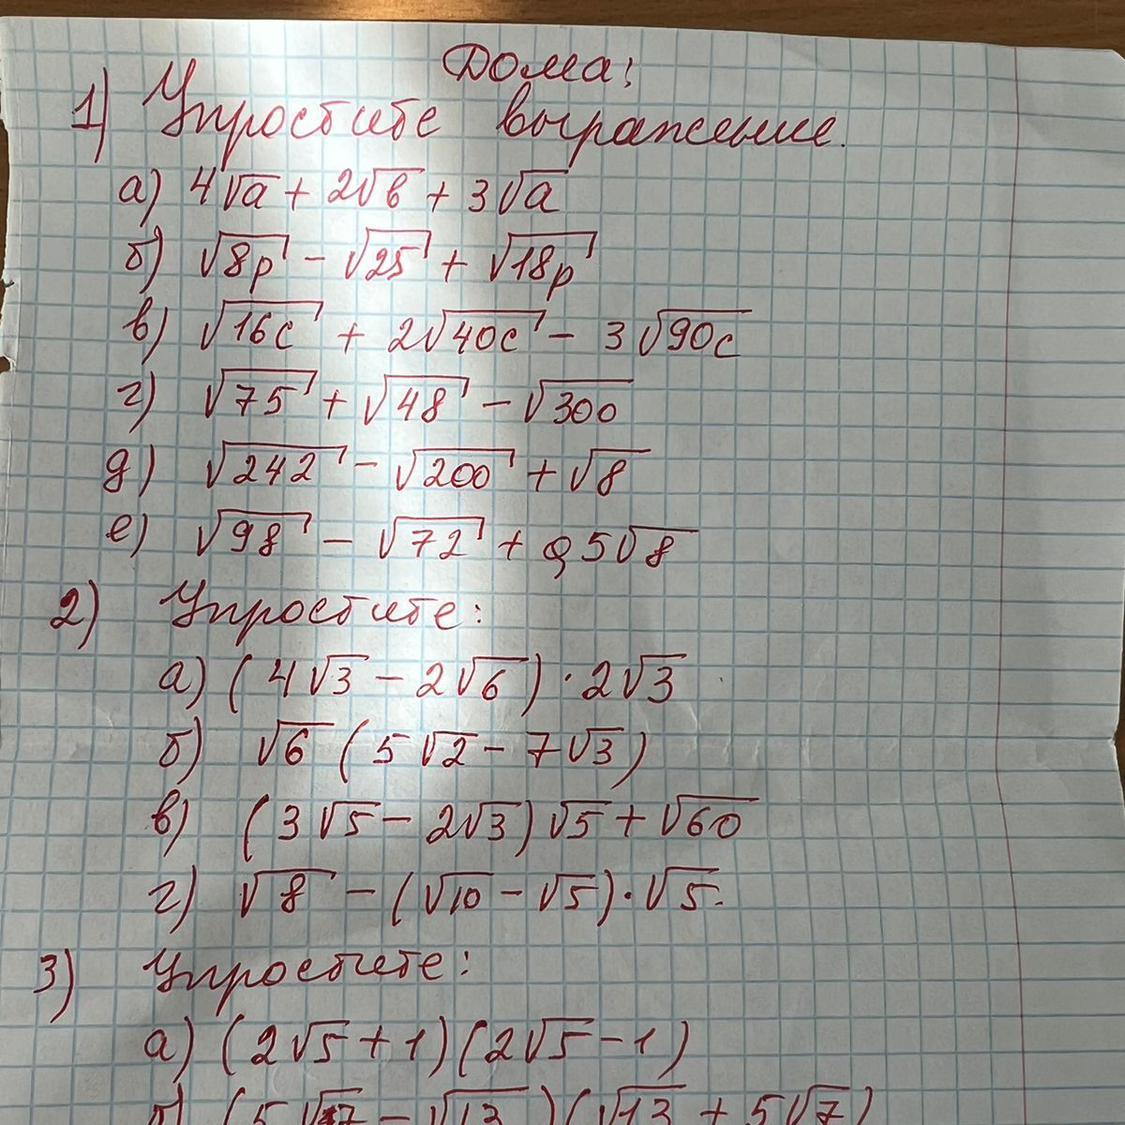 Дома:
1) Упростите выражение.
а) 4√a + 2√b + 3√a
б) √8p - √25 + √18p
в) √16c + 2√40c - 3√90c
г) √75 + √48 - √300
д) √242 - √200 + √8
е) √98 - √72 + 0,5√8
2) Упростите:
а) (4√3 - 2√6)·2√3
б) √6 (5√2 - 7√3)
в) (3√5 - 2√3)√5 + √60
г) √8 - (√10 - √5)·√5.
3) Упростите:
а) (2√5 + 1)(2√5 - 1)
б) (5√7 - √13)(√13 + 5√7)